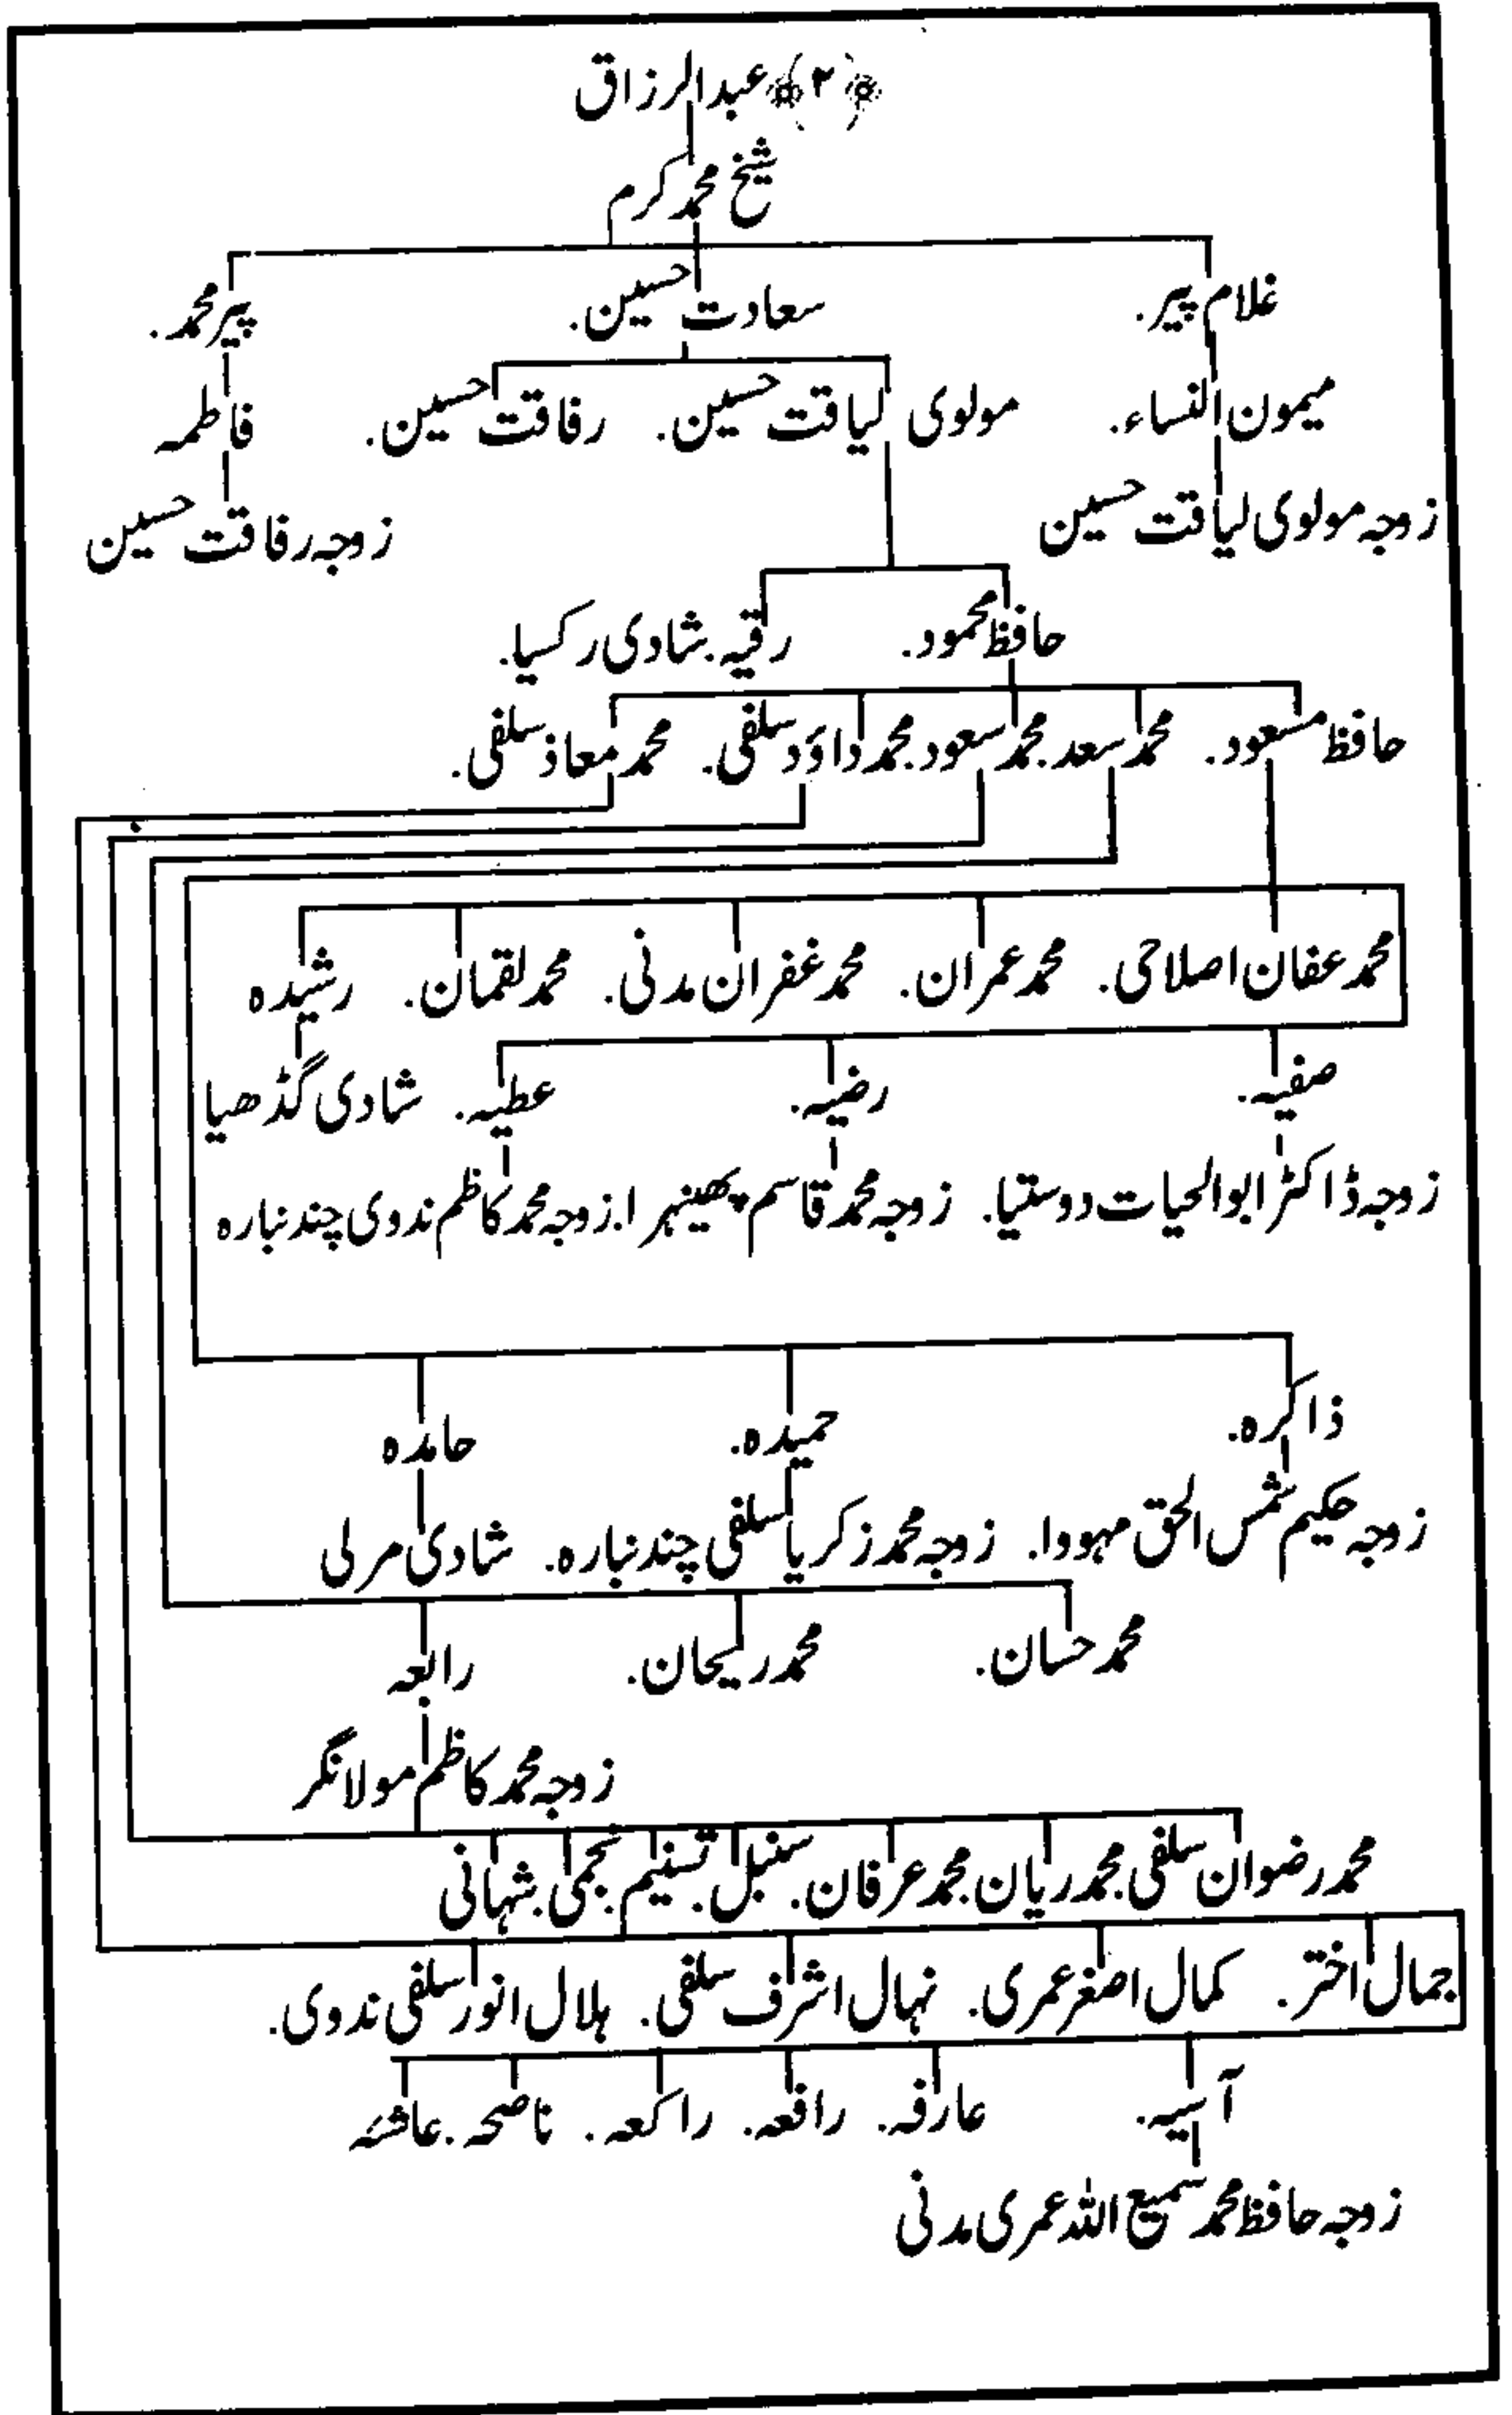 ﴿۲﴾ عبدالرزاق
شیخ محمد کرم
غلام پیر. سعادت حسین. پیر محمد.
میمون النساء. مولوی لیاقت حسین. رفاقت حسین. فاطمہ
زوجہ مولوی لیاقت حسین زوجہ رفاقت حسین
حافظ محمود. رقیہ. شادی رکسیا.
حافظ مسعود. محمد سعد. محمد سعود. محمد داؤد سلفی. محمد معاذ سلفی.
محمد عفان اصلاحی. محمد عمران. محمد غفران مدنی. محمد لقمان. رشیدہ
صفیہ. رضیہ. عطیہ. شادی گڈھیا
زوجہ ڈاکٹر ابوالحیات دوستیا. زوجہ محمد قاسم پھینہرا. زوجہ محمد کاظم ندوی چندنبارہ
ذاکرہ. حمیدہ. حامدہ
زوجہ حکیم شمس الحق مہودا. زوجہ محمد زکریا سلفی چندنبارہ. شادی مرلی
محمد حسان. محمد ریحان. رابعہ
زوجہ محمد کاظم مولانگر
محمد رضوان سلفی. محمد ریان. محمد عرفان. سنبل. تسنیم. نجمی. شہانی
جمال اختر. کمال اصغر عمری. نہال اشرف سلفی. ہلال انور سلفی ندوی.
آسیہ. عارفہ. رافعہ. راکعہ. ناصحہ. عائشہ
زوجہ حافظ محمد سمیع اللہ عمری مدنی